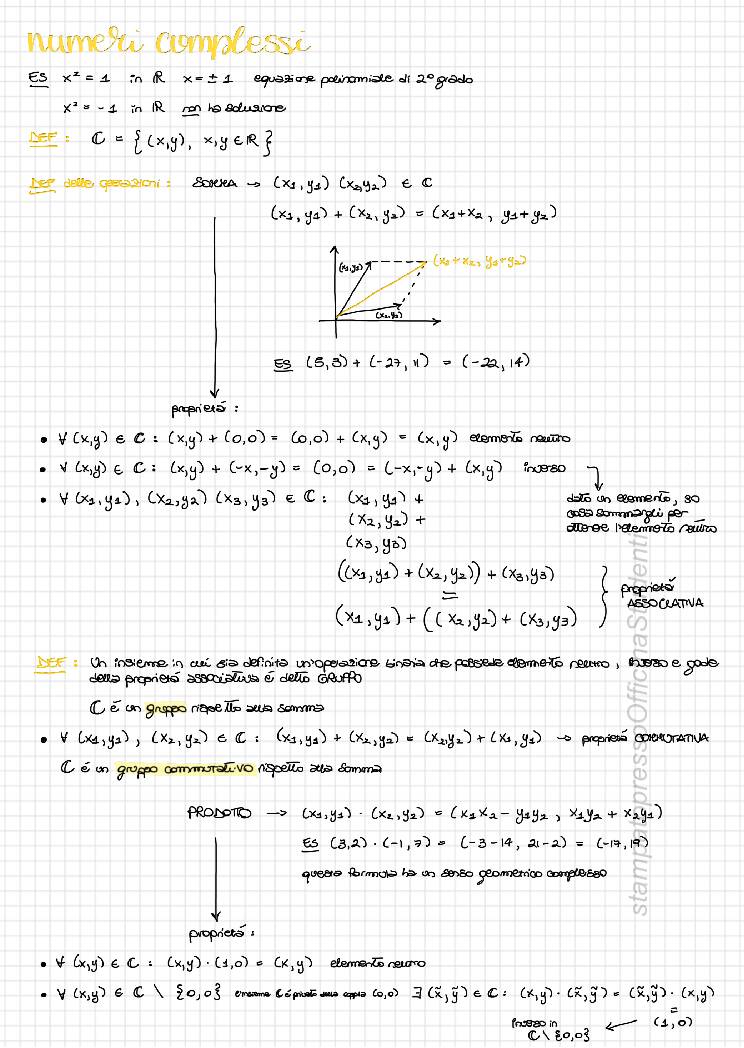 numeri complessi
ES x² = 1 in ℝ x = ± 1 equazione polinomiale di 2° grado
x² = -1 in ℝ non ha soluzione
DEF : ℂ = {(x,y), x,y ∈ ℝ}
DEF delle operazioni : SOMMA → (x₁,y₁) (x₂,y₂) ∈ ℂ
(x₁,y₁) + (x₂,y₂) = (x₁+x₂, y₁+y₂)
(x₁,y₁)
(x₁+x₂, y₁+y₂)
(x₂,y₂)
ES (5,3) + (-27, 11) = (-22, 14)
proprietà :
• ∀ (x,y) ∈ ℂ : (x,y) + (0,0) = (0,0) + (x,y) = (x,y) elemento neutro
• ∀ (x,y) ∈ ℂ : (x,y) + (-x,-y) = (0,0) = (-x,-y) + (x,y) inverso
dato un elemento, so
cosa sommargli per
ottenere l'elemento neutro
• ∀ (x₁,y₁), (x₂,y₂) (x₃,y₃) ∈ ℂ : (x₁,y₁) +
(x₂,y₂) +
(x₃,y₃)
((x₁,y₁) + (x₂,y₂)) + (x₃,y₃)
=
(x₁,y₁) + ((x₂,y₂) + (x₃,y₃))
proprietà
ASSOCIATIVA
DEF : Un insieme in cui sia definita un'operazione binaria che possiede elemento neutro, inverso e gode
della proprietà associativa è detto GRUPPO
ℂ è un gruppo rispetto alla somma
• ∀ (x₁,y₁), (x₂,y₂) ∈ ℂ : (x₁,y₁) + (x₂,y₂) = (x₂,y₂) + (x₁,y₁) → proprietà COMMUTATIVA
ℂ è un gruppo commutativo rispetto alla somma
PRODOTTO → (x₁,y₁) · (x₂,y₂) = (x₁x₂ - y₁y₂, x₁y₂ + x₂y₁)
ES (3,2) · (-1,7) = (-3-14, 21-2) = (-17,19)
questa formula ha un senso geometrico complesso
proprietà :
• ∀ (x,y) ∈ ℂ : (x,y) · (1,0) = (x,y) elemento neutro
• ∀ (x,y) ∈ ℂ \ {0,0} l'insieme ℂ è privato della coppia (0,0) ∃ (x̃,ỹ) ∈ ℂ : (x,y) · (x̃,ỹ) = (x̃,ỹ) · (x,y)
=
(1,0)
inverso in
ℂ \ {0,0}
stampatopressoOfficinaStudenti